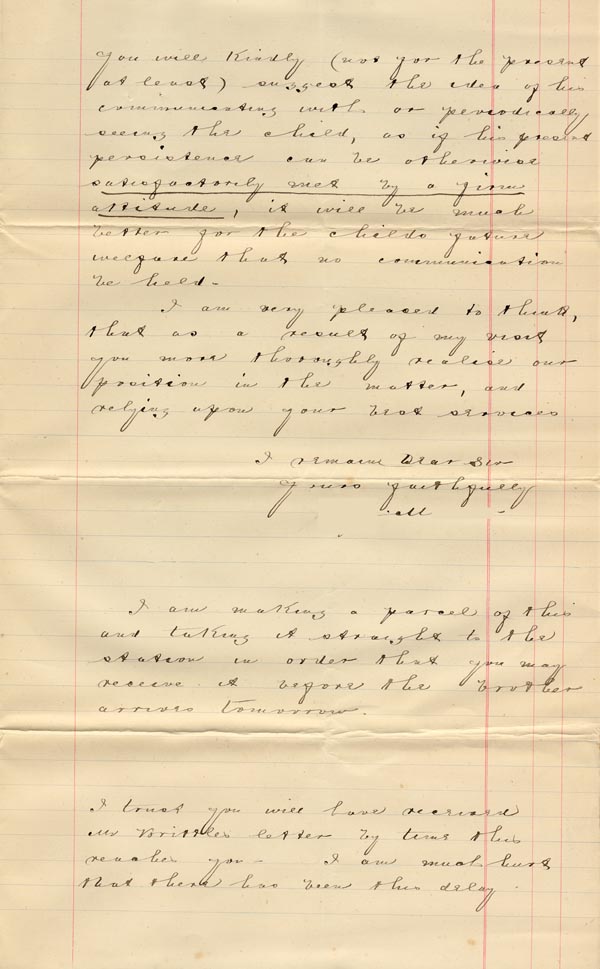 you will kindly (not for the present
at least) suggest the idea of his
communicating with or periodically
seeing the child, as if his present
persistence can be otherwise
satisfactorily met by a firm
attitude, it will be much
better for the childs future
welfare that no communication
be held.
I am very pleased to think,
that as a result of my visit
you more thoroughly realise our
position in the matter, and
relying upon your best services
I remain Dear Sir
Yours faithfully
I am making a parcel of this
and taking it straight to the
station in order that you may
receive it before the brother
arrives tomorrow.
I trust you will have received
Mr Brittles letter by time this
reaches you - I am much hurt
that there has been this delay.